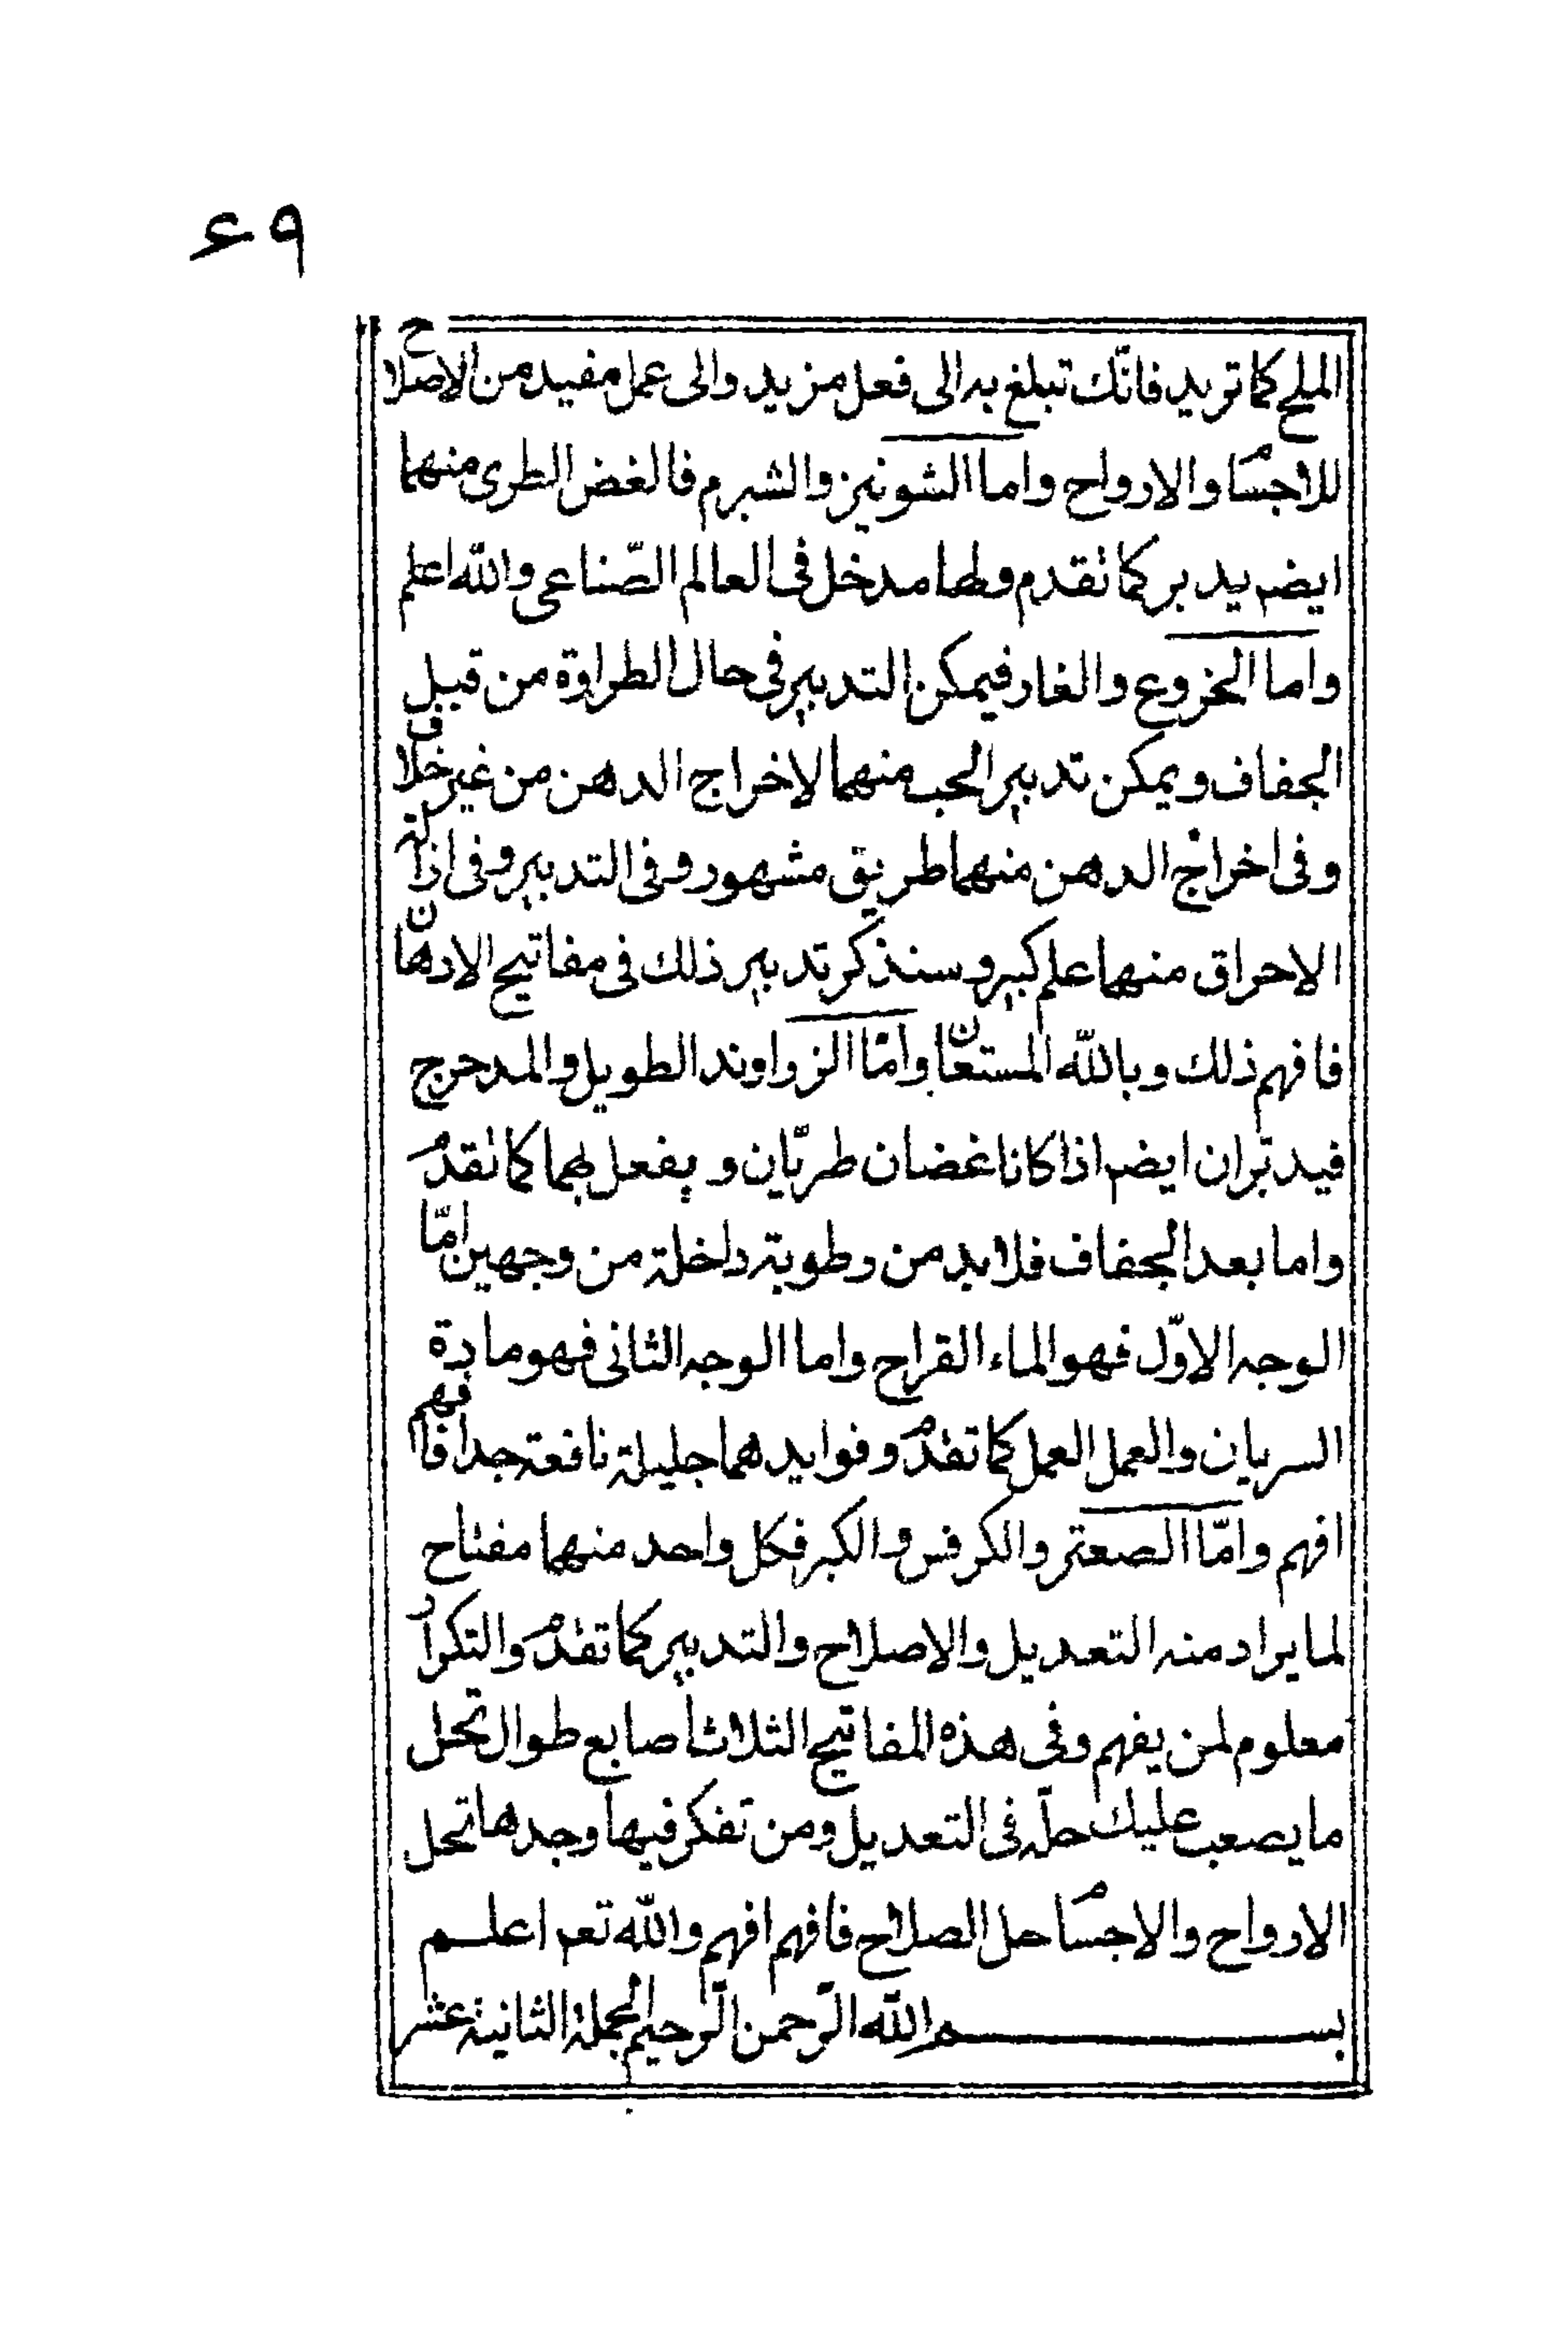 ء٩
الملح كما تريد فانّك تبلغ به الى فعل مزيد والى عمل مفيد من الاصلاح
للاجسام والارواح واما الشونيز والشبرم فالغض الطرى منهما
ايضم يدبر كما تقدم ولهما مدخل فى العالم الصّناعى والله اعلم
واما الخروع والغار فيمكن التدبير فى حال الطراوة من قبل
الجفاف ويمكن تدبير الحب منهما لاخراج الدهن من غير خلاف
وفى اخراج الدهن منهما طريق مشهور وفى التدبير وفى ازالة
الاحراق منهما علم كبير وسنذكر تدبير ذلك فى مفاتيح الادهان
فافهم ذلك وبالله المستعان وامّا الزراوند الطويل والمدحرج
فيدبّران ايضم اذا كانا غضان طريّان ويفعل بهما كما تقدم
واما بعد الجفاف فلابد من رطوبة داخلة من وجهين امّا
الوجه الاوّل فهو الماء القراح واما الوجه الثانى فهو مادة
السريان والعمل العمل كما تقدم وفوايدهما جليلة نافعة جدا فافهم
افهم وامّا الصعتر والكرفس والكبر فكل واحد منهما مفتاح
لما يراد منه التعديل والاصلاح والتدبير كما تقدم والتكرار
معلوم لمن يفهم وفى هذه المفاتيح الثلاث اصابع طوال تحل
ما يصعب عليك حلّه فى التعديل ومن تفكر فيها وجدها تحل
الارواح والاجسام حل الصلاح فافهم افهم والله تعم اعلم
بسم الله الرّحمن الرّحيم الجملة الثانية عشر